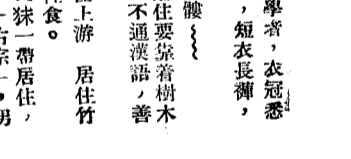 學者，衣冠悉
，短衣長褲，
髏
住要靠着樹木
不通漢語，善
上游　居住竹
食。
猍一帶居住，